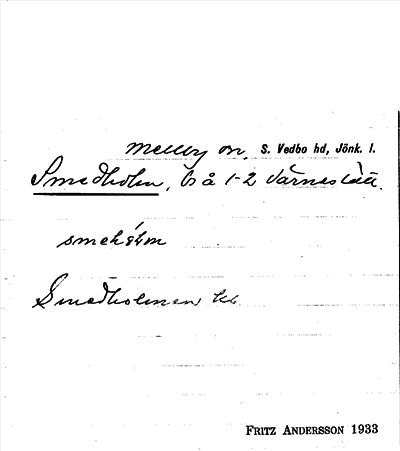 Mellby sn, S. Vedbo hd, Jönk. l.
Smedholm, bs å 1-2 Värneslätt.
smehǻm
Smedholmen kb
FRITZ ANDERSSON 1933